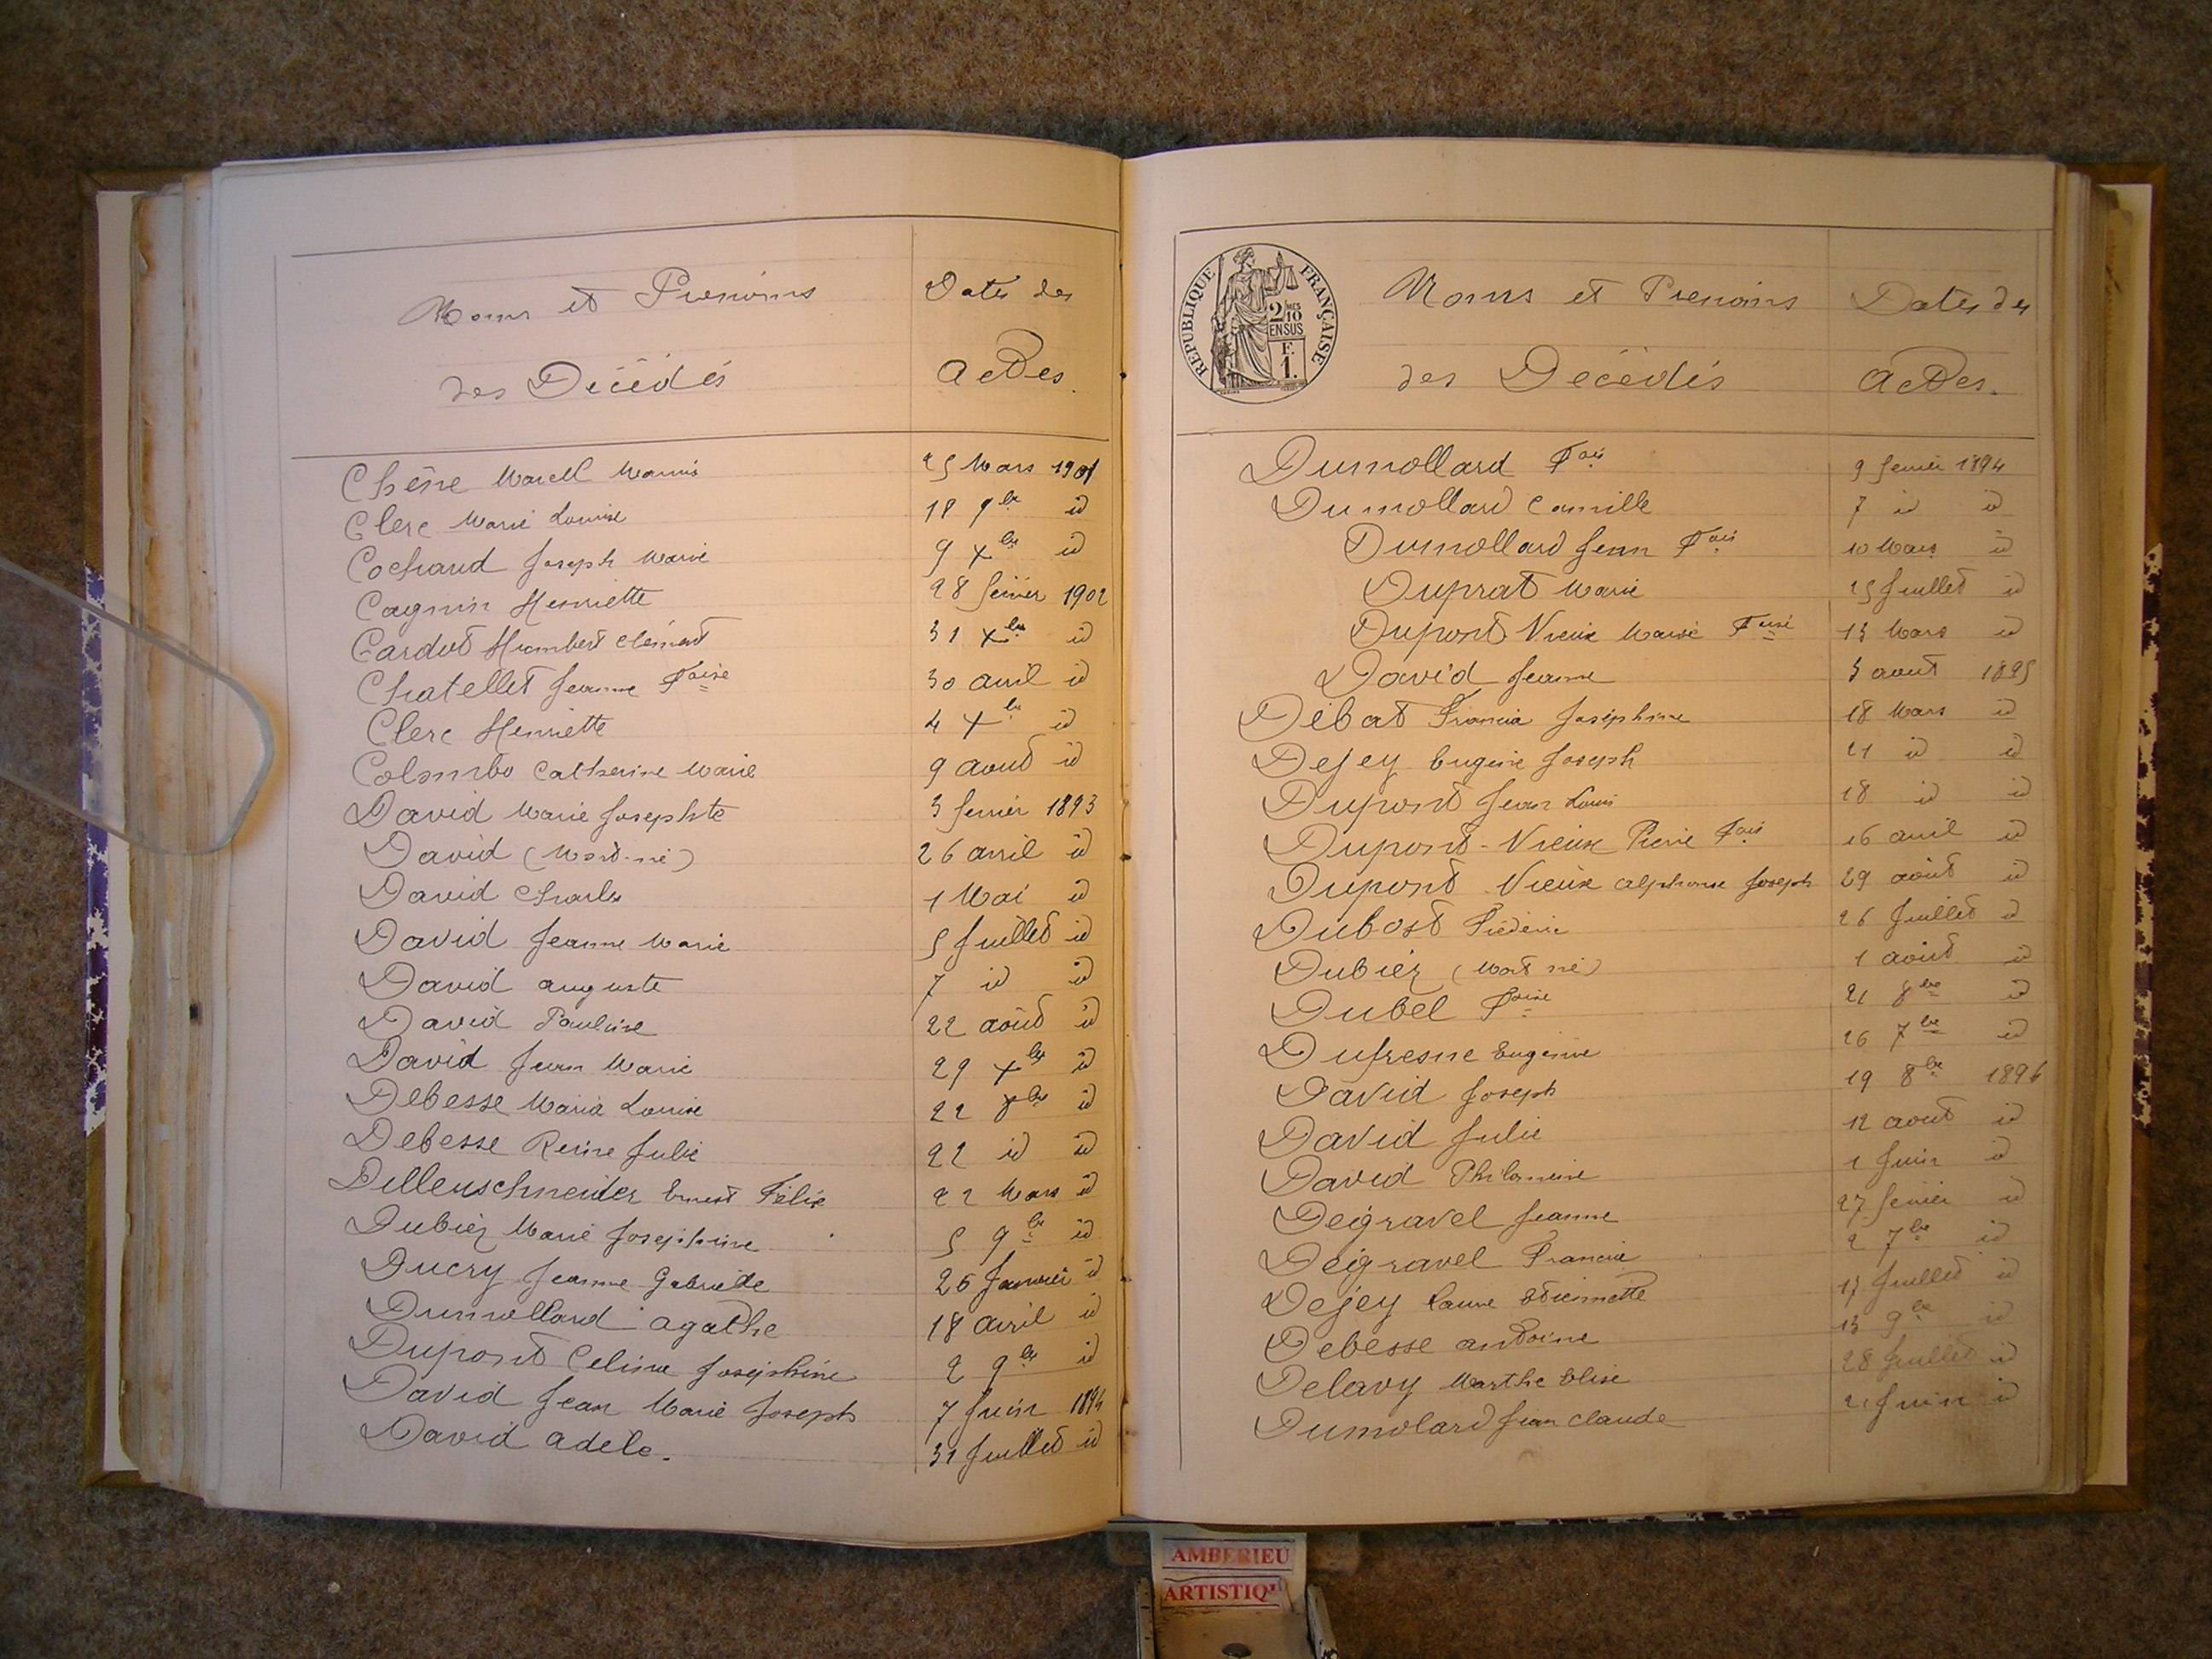 Noms et Prenoms Dates des
des Décédés Actes.
Chêne Marcel Marius 25 Mars 1901
Clerc Marie Louise 18 9bre id
Cochand Joseph Marie 9 Xbre id
Cagnin Henriette 28 février 1902
Cardot Humbert Clément 31 Xbre id
Chatellet Jeanne Foise 30 avril id
Clerc Henriette 4 Xbre id
Colombo Catherine Marie 9 aout id
David Marie Josephte 3 fevrier 1893
David (Mort-né) 26 avril id
David Charles 1 Mai id
David Jeanne Marie 5 Juillet id
David auguste 7 id id
David Pauline 22 août id
David Jean Marie 29 Xbre id
Debesse Maria Louise 22 8bre id
Debesse Reine Julie 22 id id
Dillenschneider Ernest Félix 22 Mars id
Dubiez Marie Josephine 5 9bre id
Ducry Jeanne Gabrielle 26 Janvier id
Dumollard agathe 18 avril id
Dupont Celine Joséphine 2 9bre id
David Jean Marie Joseph 7 Juin 1894
David adèle. 31 Juillet id
REPUBLIQUE FRANÇAISE
2/10 MES
EN SUS
F.
1.
Noms et Prenoms Dates des
des Décédés Actes.
Dumollard Fois 9 fevrier 1894
Dumollard Camille 7 id id
Dumollard Jean Fois 10 Mars id
Duprat Marie 25 Juillet id
Dupont Vieux Marie Foise 13 Mars id
David Jeanne 3 aout 1895
Débat Francia Joséphine 18 Mars id
Dejey Eugène Joseph 21 id id
Dupont Jean Louis 18 id id
Dupont-Vieux Pierre Fois 16 avril id
Dupont Vieux alphonse Joseph 29 août id
Dubost Fréderic 26 Juillet id
Dubiez (Mort né) 1 août id
Dubel Foise 21 8bre id
Dufresne Eugénie 26 7bre id
David Joseph 19 8bre 1896
David Julie 12 aout id
David Philomène 1 Juin id
Degravel Jeanne 27 fevrier id
Degravel Francine 2 7bre id
Dejey Laure Etiennette 17 Juillet id
Debesse antoine 13 9bre id
Delavy Marthe Elise 28 Juillet id
Dumolard Jean Claude 21 Juin id
AMBERIEU
ARTISTIQ